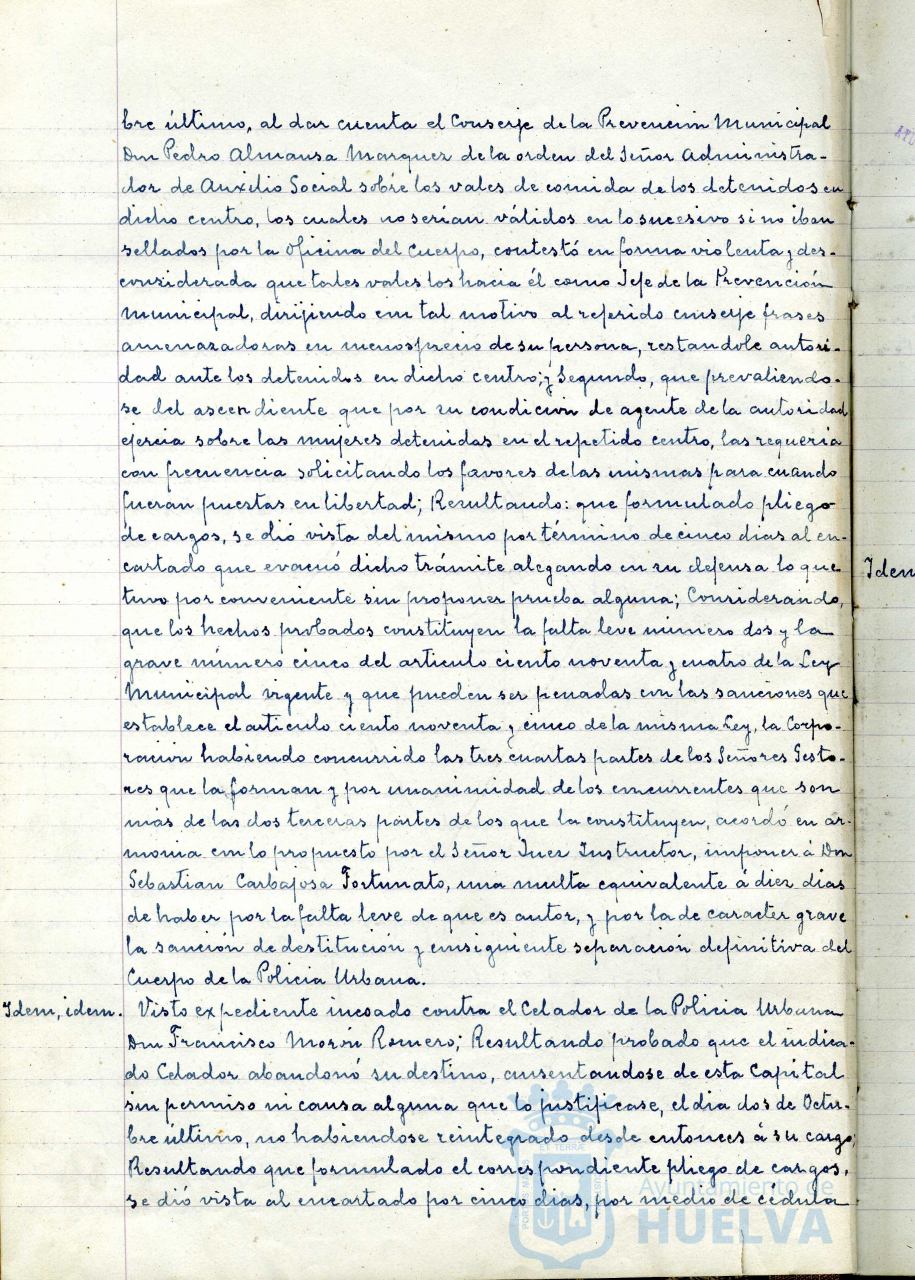 bre último, al dar cuenta el Conserje de la Prevención Municipal
Don Pedro Almansa Marquez de la orden del Señor Administra-
dor de Auxilio Social sobre los vales de comida de los detenidos en
dicho centro, los cuales no serían válidos en lo sucesivo si no iban
sellados por la Oficina del Cuerpo, contestó en forma violenta y des-
considerada que tales vales los hacia él como Jefe de la Prevención
Municipal, dirijiendo con tal motivo al referido conserje frases
amenazadoras en menosprecio de su persona, restandole autori-
dad ante los detenidos en dicho centro; y Segundo, que prevaliendo-
se del ascendiente que por su condición de agente de la autoridad
ejercia sobre las mujeres detenidas en el repetido centro, las requeria
con frecuencia solicitando los favores de las mismas para cuando
fueran puestas en libertad; Resultando: que formulado pliego
de cargos, se dió vista del mismo por término de cinco dias al en-
cartado que evacuó dicho trámite alegando en su defensa lo que
tuvo por conveniente sin proponer prueba alguna; Considerando,
que los hechos probados constituyen la falta leve número dos y la
grave número cinco del articulo ciento noventa y cuatro de la Ley
Municipal vigente y que pueden ser penadas con las sanciones que
establece el articulo ciento noventa y cinco de la misma Ley, la Corpo-
racion habiendo concurrido las tres cuartas partes de los Señores Gesto-
res que la forman y por unanimidad de los concurrentes que son
más de las dos terceras partes de los que la constituyen, acordó en ar-
monia con lo propuesto por el Señor Juez Instructor, imponer á Don
Sebastian Carbajosa Fortunato, una multa equivalente á diez dias
de haber por la falta leve de que es autor, y por la de caracter grave
la sanción de destitución y consiguiente separación definitiva del
Cuerpo de la Policia Urbana.
Idem, idem. Visto expediente incoado contra el Celador de la Policia Urbana
Don Francisco Morón Romero; Resultando probado que el indica-
do Celador abandonó su destino, ausentandose de esta Capital
sin permiso ni causa alguna que lo justificase, el dia dos de Octu-
bre último, no habiendose reintegrado desde entonces á su cargo;
Resultando que formulado el correspondiente pliego de cargos,
se dió vista al encartado por cinco dias, por medio de cédula
Idem
Ayuntamiento de
HUELVA